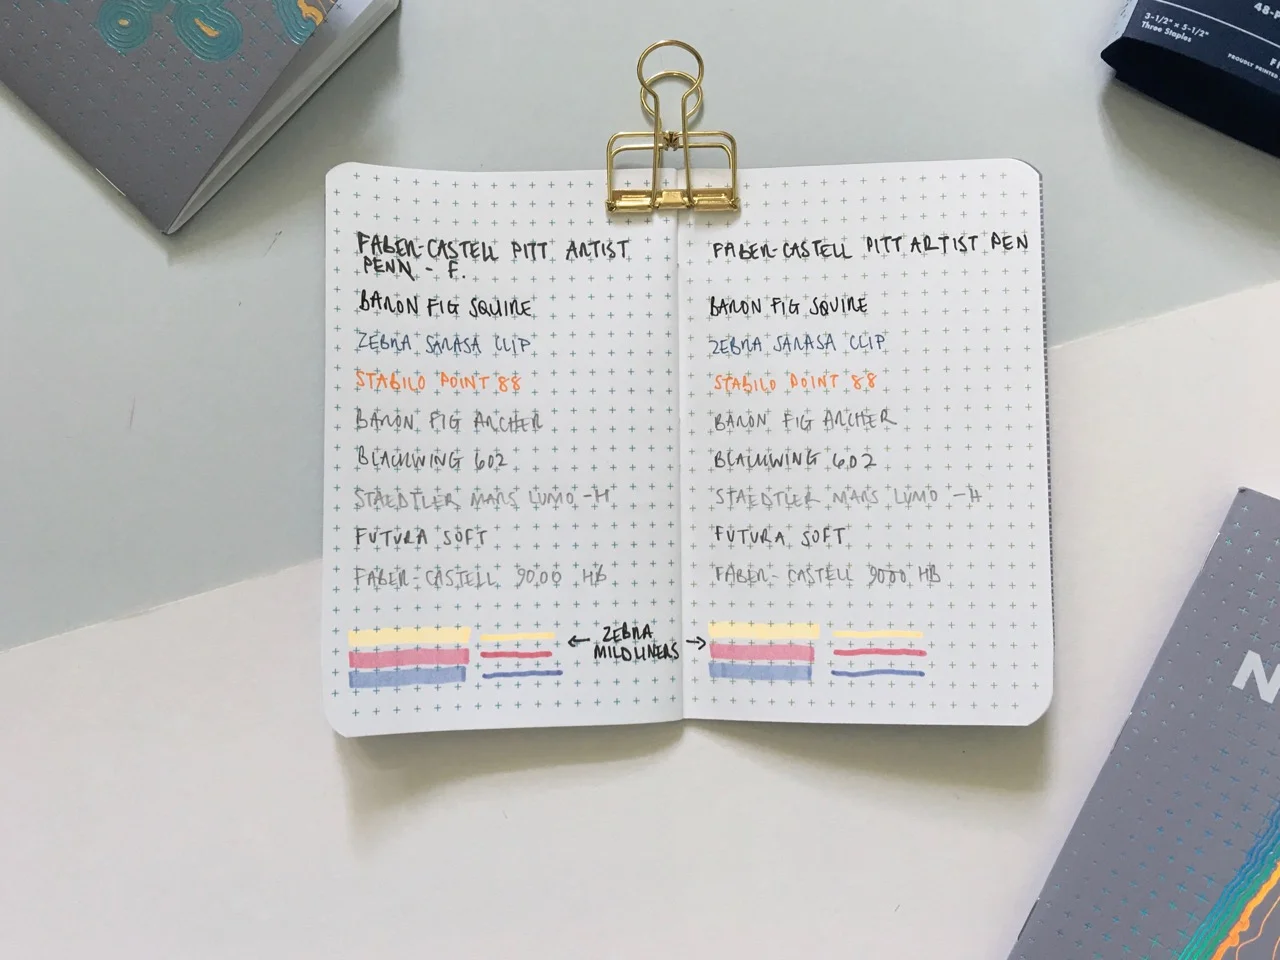 48-
3-1/2" × 5-1/2"
Three Staples
PROUDLY PRINTED
FABER-CASTELL PITT ARTIST
PENN - F.
BARON FIG SQUIRE
ZEBRA SARASA CLIP
STABILO POINT 88
BARON FIG ARCHER
BLACKWING 602
STAEDTLER MARS LUMO -H
FUTURA SOFT
FABER-CASTELL 9000 HB
FABER-CASTELL PITT ARTIST PEN
BARON FIG SQUIRE
ZEBRA SARASA CLIP
STABILO POINT 88
BARON FIG ARCHER
BLACKWING 602
STAEDTLER MARS LUMO -H
FUTURA SOFT
FABER-CASTELL 9000 HB
← ZEBRA →
MILDLINERS
N